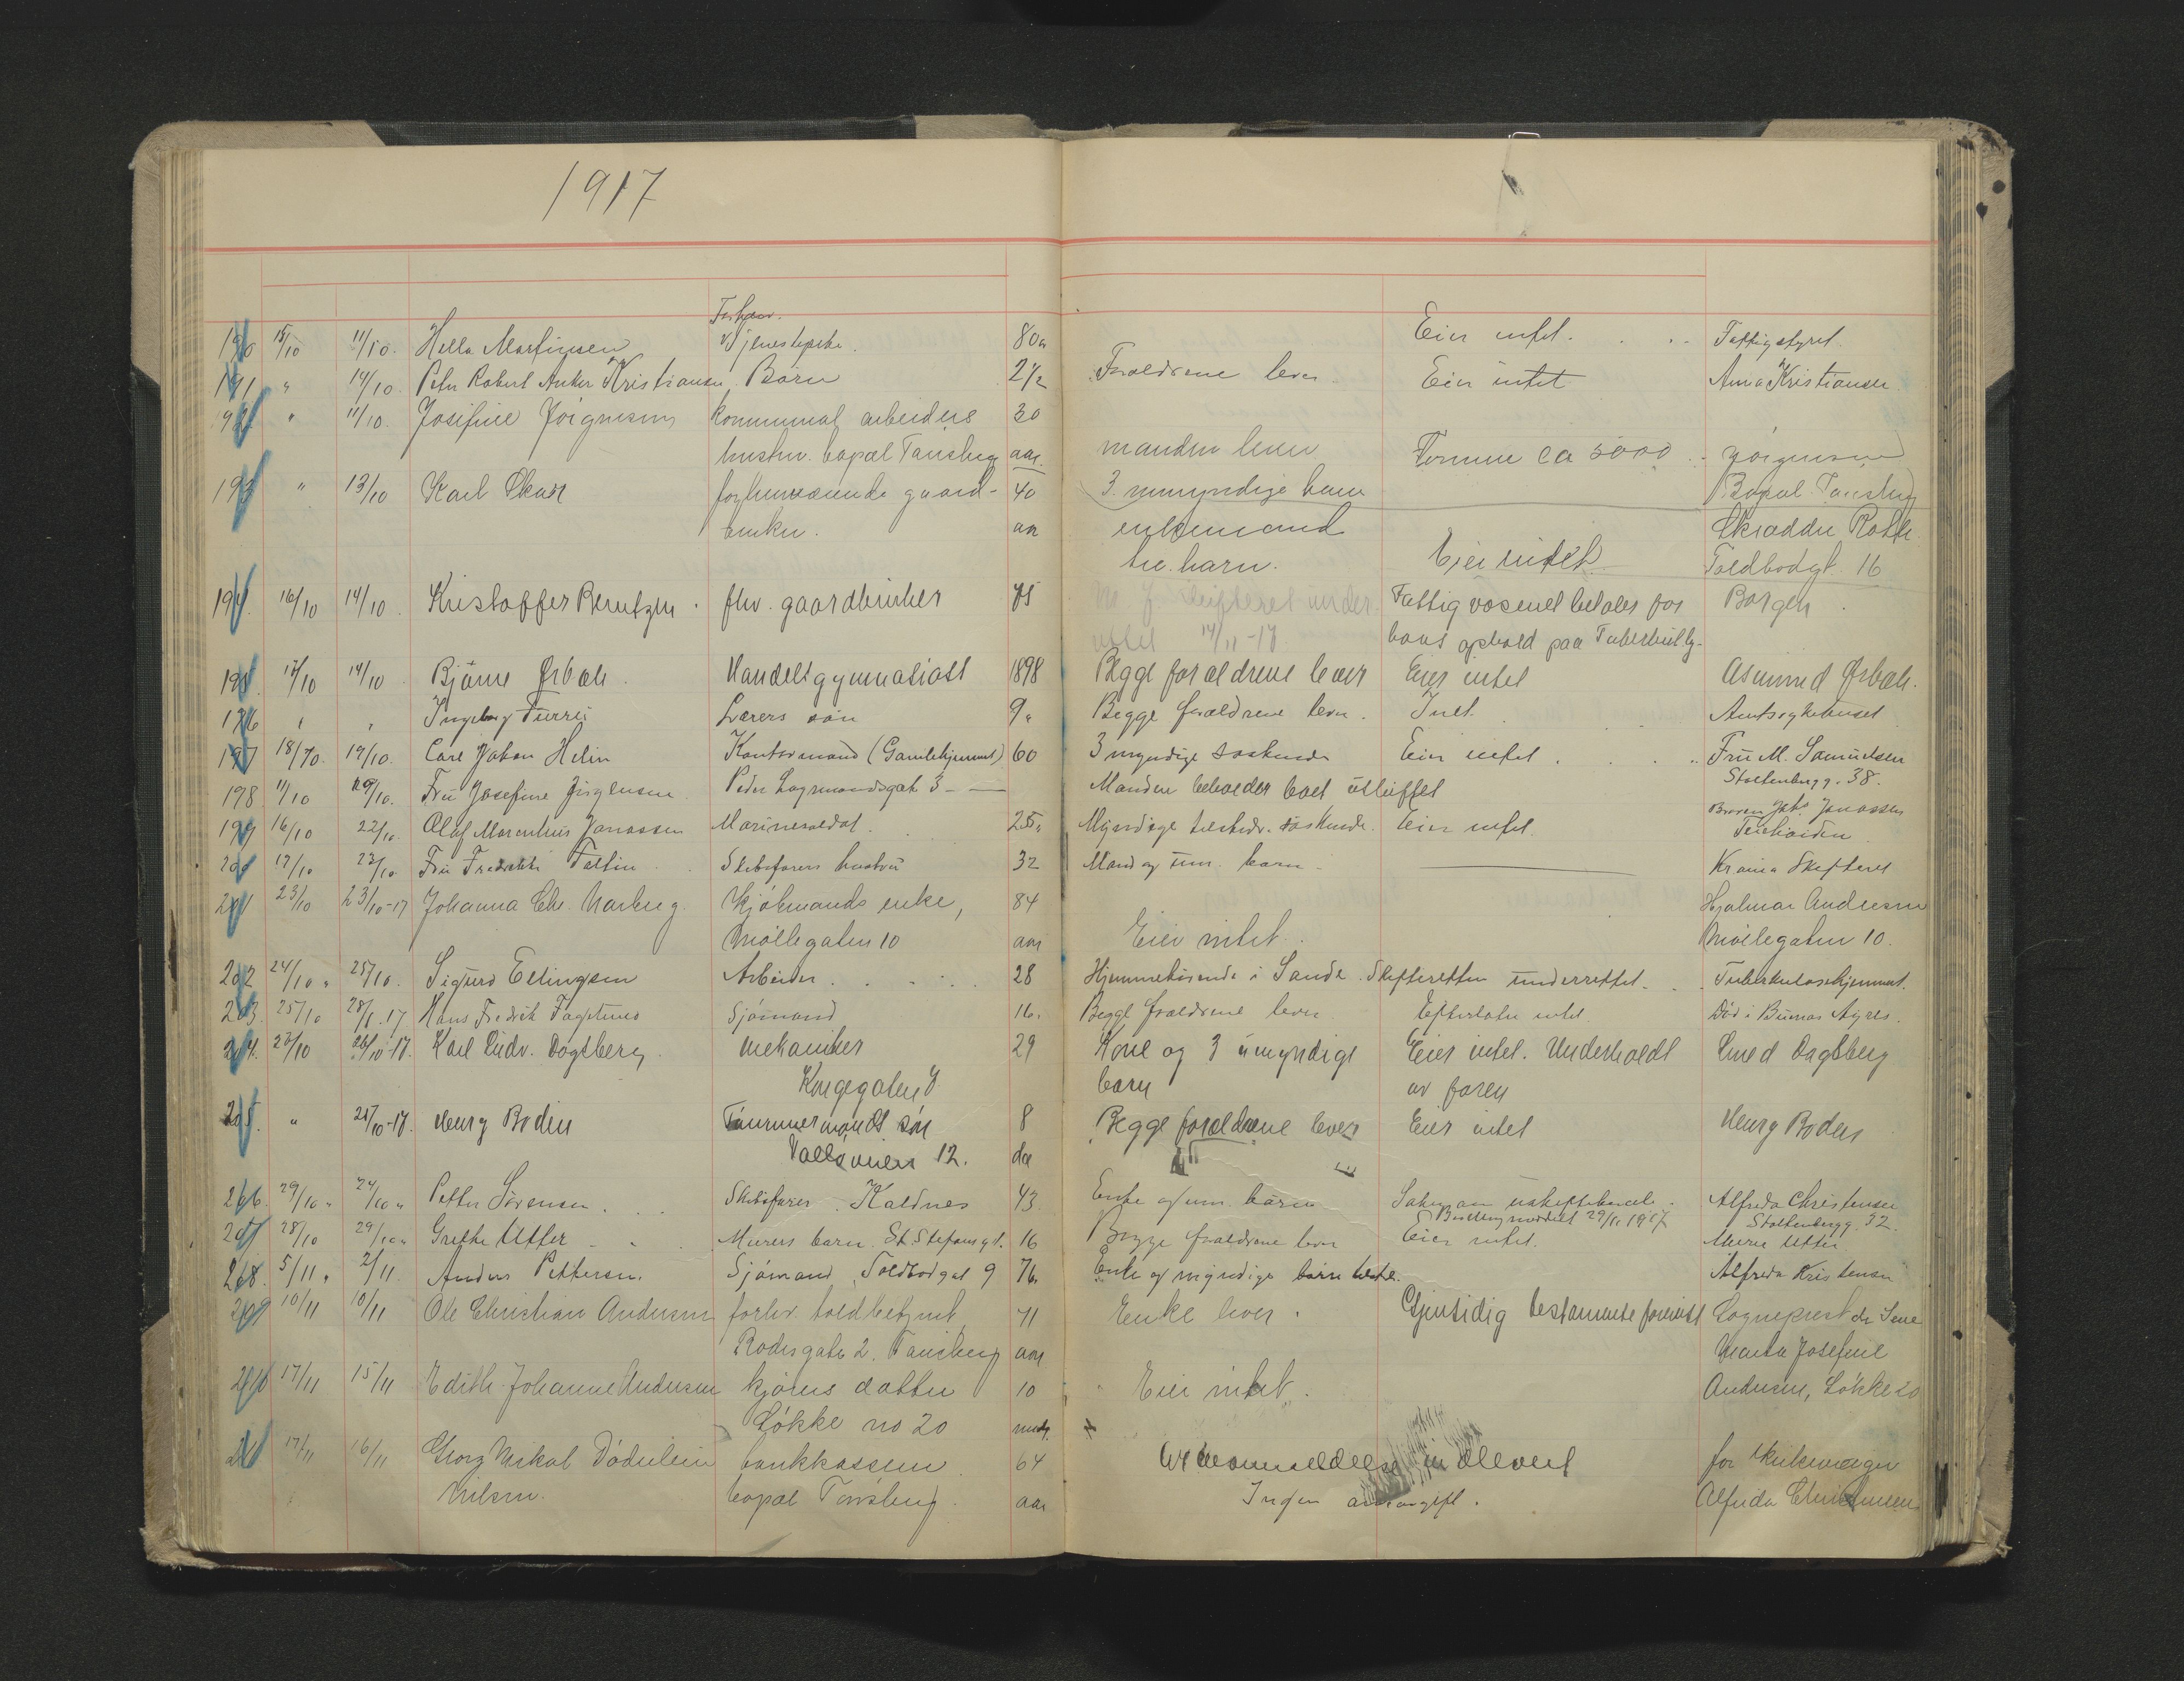 1917
Forhenv.
190 15/10 11/10. Hella Martinsen Tjenestepike. 80 a Eier intet. Fattigstyret.
191 " 14/10. Peter Robert Anker Kristiansen Barn 2 1/2 Forældrene lever Eier intet Anna Kristiansen
192 " 11/10. Josifine Jörgensen kommunal arbeiders 30
hustru. bopæl Tønsberg aar. manden lever Formue ca 5000 Jörgensen
193 " 13/10 Karl Skar forhenværende gaard- 40 3 umyndige barn Bopæl Tønsberg
bruker. aar enkemand Skrædder Roth
tre barn. Eier intet Toldbodgt. 16
194. 16/10 14/10. Kristoffer Berntzen. fhv. gaardbruker 75 skifteret under Fattigvæsenet betaler for Borgen.
rettet 14/11-17 hans ophold paa Tuberkulhj.
195. 17/10 14/10 Bjarne Ørbæk. Handelsgymnasiast 1898 Begge forældrene lever Eier intet Asmund Ørbæk.
196 " " Ingeborg Lærers søn 9 " Begge forældrene lever. Intet. Amtssykehuset
197 18/10. 19/10. Carl Jakob Helin Kontormand (Gamlehjemmet) 60 3 myndige søskende Eier intet. Fru M. Samuelsen
Stoltenbergg. 38.
198 11/10 10/10. Fru Josefine Jörgensen Peder Lagmandsgate 3 - Manden beholder boet uskiftet
Broren Johs. Jonassen
199 16/10 22/10. Olaf Marentius Jonassen Marinesoldat. 25 " Myndige søskende. Eier intet.
200 17/10 23/10. Fru Fredrikke Skibsførers hustru 32 Mand og um. barn Skifteret
201 23/10 23/10-17 Johanna Chr. Marberg. Kjöbmands enke, 84 Hjalmar Andersen
Möllegaten 10 aar Eier intet. Möllegaten 10.
202 24/10 " 25/10. Sigurd Ellingsen Arbeider. 28 Hjemmehørende i Sande. Skifteretten underrettet. Tuberkulosehjemmet.
203. 25/10 28/8.17 Hans Fredrik Sjömand 16. Begge forældrene lever. Efterlater intet. Död i Buenos Ayres.
204. 23/10 26/10-17. Karl Ludv. Dagsberg. mekaniker 29 Kone og 3 umyndige Eier intet. Underholdt Smed Dagsberg
Kongegaten 7 barn av faren
205. " 25/10-17. Henry Bodin Tømmermands søn 8 Begge forældrene lever Eier intet Henry Bodin
Valløveien 12. da
206. 29/10 " 24/10 " Petter Sörensen. Skibsfører. Kaldnes 43 Enke og um. barn Alfreda Christensen
29/11 1917 Stoltenbergg. 32.
207 28/10 29/10 " Grethe Utter " Murers barn. St. Stefansgt. 16 Begge forældrene lever Eier intet. Murer Utter
208. 5/11 " 2/11 Anders Pettersen. Sjömand, Toldbodgat 9 76. Enke og myndige barn Alfreda Kristensen
209 10/11 10/11 Ole Christian Andersen forhv. toldbetjent 71 Enke lever. Gjensidig testamente Sogneprest
Rodesgate 2. Tønsberg aar Josefine
210 17/11 15/11 Edith Johanne Andersen kjörers datter 10 Eier intet. Andersen, Løkke 20
Løkke no 20 mndr.
211 17/11 16/11 Georg Nikol Döderlein bankkasserer 64 Arveanmeldelse indlevert for skiftevæger
Nilsen. bopæl Tønsberg. aar Ingen arveavgift. Alfreda Christensen